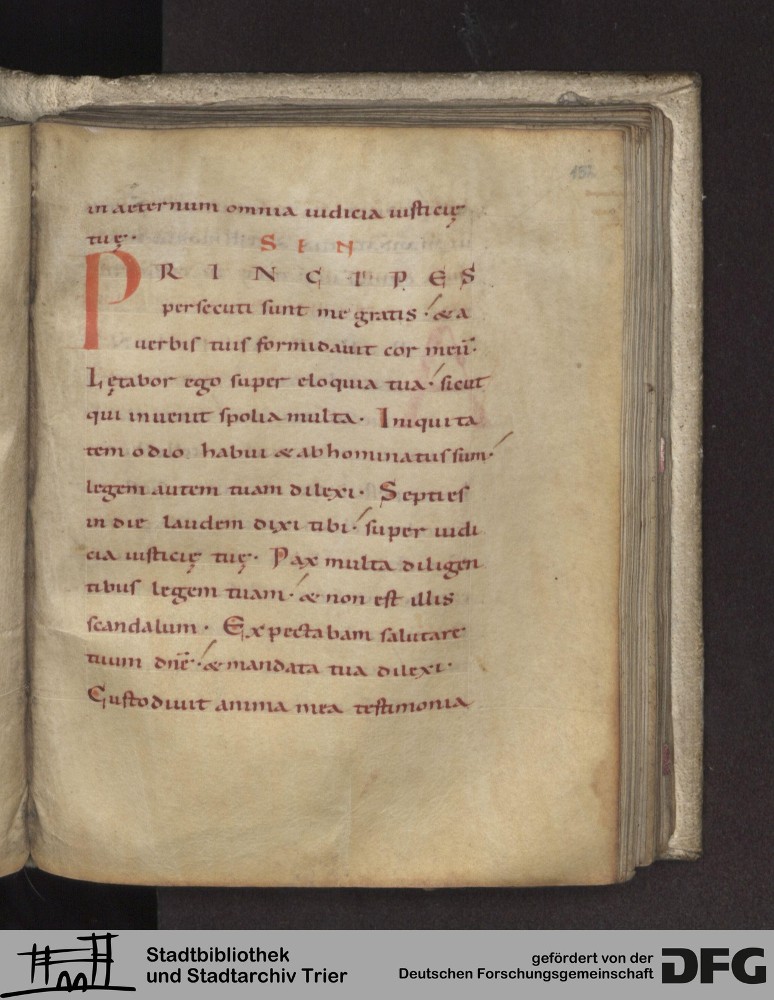 157
in aeternum omnia iudicia iusticię
tuę.
SIN
PRINCIPES
persecuti sunt me gratis. & a
uerbis tuis formidauit cor meū.
Lętabor ego super eloquia tua. sicut
qui inuenit spolia multa. Iniquita
tem odio habui & abhominatus sum.
legem autem tuam dilexi. Septies
in die laudem dixi tibi. super iudi
cia iusticię tuę. Pax multa diligen
tibus legem tuam. & non est illis
scandalum. Expectabam salutare
tuum dn̄e. & mandata tua dilexi.
Custodiuit anima mea testimonia
Stadtbibliothek
und Stadtarchiv Trier
gefördert von der
Deutschen Forschungsgemeinschaft
DFG